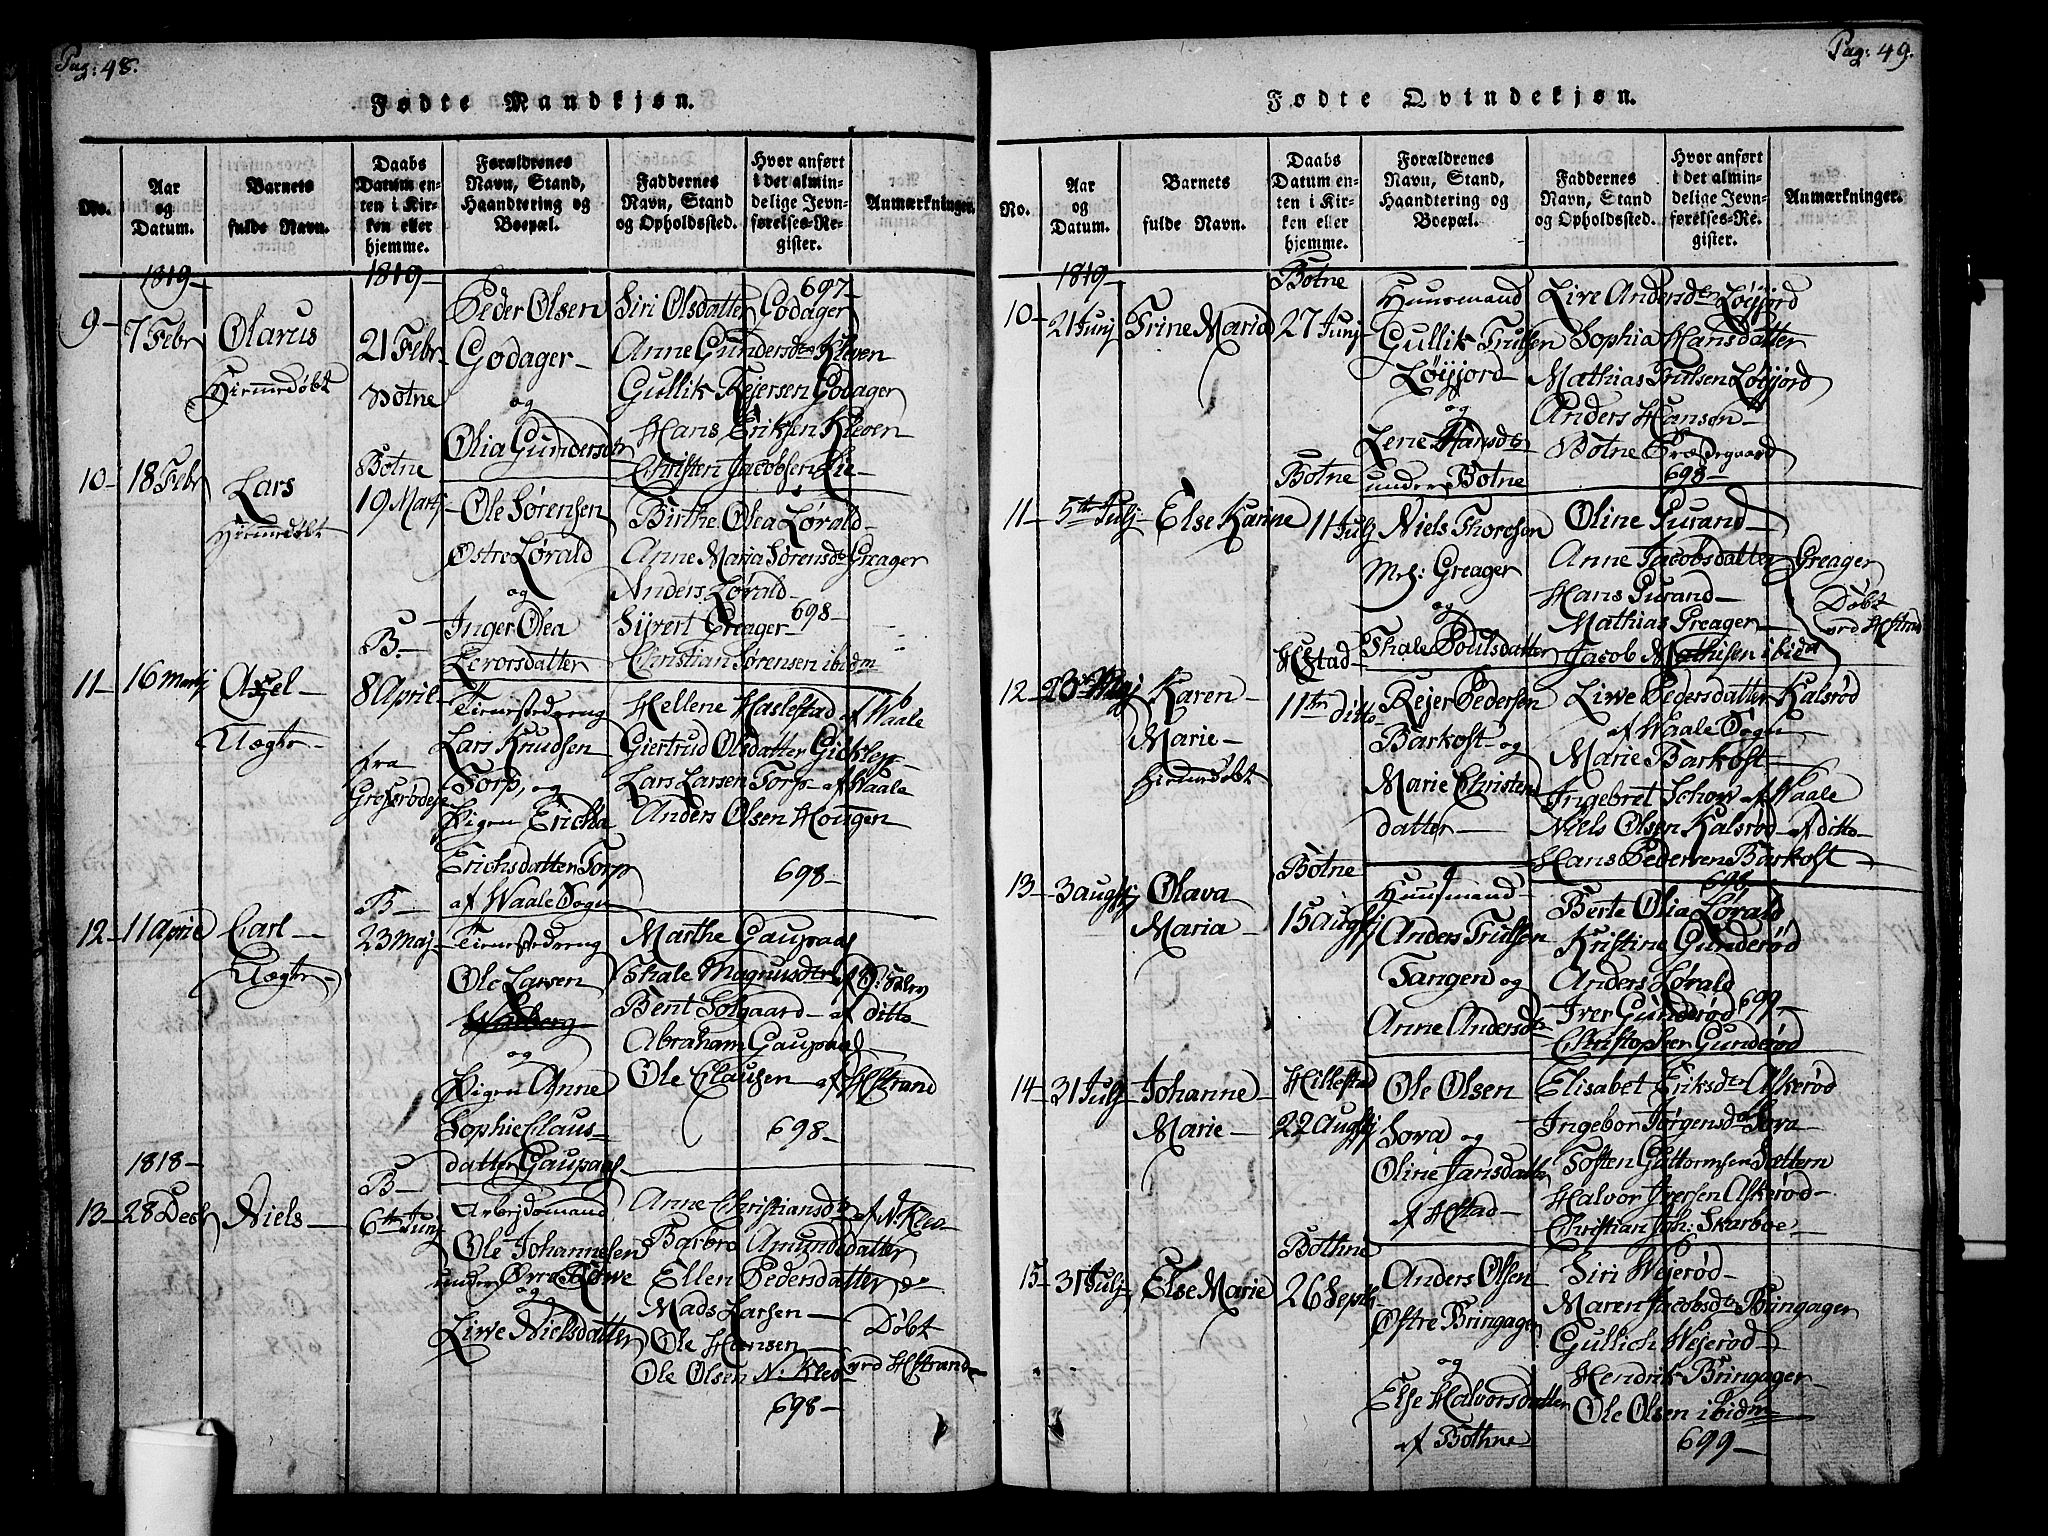 Pag: 48.
Fødte Mandkjøn.
No.
Aar
og
Datum.
Barnets
fulde Navn.
Daabs
Datum en-
ten i Kir-
ken eller
hjemme.
Forældrenes
Navn, Stand,
Haandtering og
Boepæl.
Faddernes
Navn, Stand
og Opholdssted.
Hvor anført
i det almin-
delige Jevn-
førelses-Re-
gister.
Anmærkninger.
1819
9
7 Febr
Olarus
Hiemmedøbt
1819
21 Febr
Botne
Peder Olsen
Godager
og
Olia Gundersdtr
697
Siri Olsdatter Godager
Anne Gundersdtr Kleven
Gullik Rejersen Godager
Hans Eriksen Kleven
Christen Jacobsen Lie
10
18 Febr
Lars
Hiemmedøbt
Botne
19 Martj
Ole Sørensen
Østre Lørald
og
Inger Olea
Birthe Olea Lørald
Anne Maria Sørensdtr Greager
Anders Lørald
Sijvert Greager
Christian Sørensen ibidm
698
11
16 Martj
Axel
Uægte
B.
8 April
fra
Lars Knudsen
Torp, og
Pigen Ericka
Erichsdatter Torp
af Waale Sogn
Hellene Haslestad af Waale
Giertrud Olsdatter
Lars Larsen Torp af Waale
Anders Olsen Hougen
698
12
11 April
Carl
Uægte
B
23 Maj
Ole Larsen
og
Pigen Anne
Sophie Claus-
datter Gaupaas
Marthe Gaupaas
Bent Solgaard af ditto
Abraham Gaupaas
Ole Clausen af HStrand
698
1818
13
28 Decbr
Niels
B
6te Junj
Arbejdsmand
Ole Johannesen
under
og
Liwe Nielsdatter
Anne Christiansdtr
Barbro Amundsdatter
Ellen Pedersdatter do
Mads Larsen
Ole Hansen
Ole Olsen
Døbt
ved HStrand
698
Pag: 49.
Fødte Qvindekjøn.
No.
Aar
og
Datum.
Barnets
fulde Navn.
Daabs
Datum en-
ten i Kir-
ken eller
hjemme.
Forældrenes
Navn, Stand,
Haandtering og
Boepæl.
Faddernes
Navn, Stand
og Opholdssted.
Hvor anført
i det almin-
delige Jevn-
førelses-Re-
gister.
Anmærkninger.
1819
10
21 Junj
Trine Maria
Botne
27 Junj
Huusmand
Gullik Trulsen
Løyjord
og
Lene Hansdtr
under Botne
Live Andersdtr Løyjord
Sophia Hansdatter
Mathias Trulsen Løyjord
Anders Hansen
Botne Præstegaard
698
11
5te Julj
Else Karine
Botne
11 Julj
Niels Thoresen
Greager
og
Skale Poulsdatter
Oline Purand
Anne Jacobsdatter Greager
Hans Purand
Mathias Greager
Jacob Mathisen ibid
Døbt
ved HStrand
12
Karen
Marie
Hiemmedøbt
HEstad
11te ditto
Rejer Pedersen
Barkost og
Marie Christen
datter
Liwe Pedersdatter Kalsrød
af Waale Sogn
Marie Barkost
Ingebret Schow af Waale
Niels Olsen Kalsrød af ditto
Hans Pedersen Barkost
698
13
3 Augstj
Olava
Maria
Botne
15 Augstj
Huusmand
Anders Trulsen
Tangen og
Anne Andersdtr
Berte Olia Lørald
Kristine Gunderød
Anders Lørald
Iver Gunderød
Christopher Gunderød
699
14
31 Julj
Johanne
Marie
Hillestad
22 Augstj
Ole Olsen
Sora og
Oline Jansdatter
af HStad
Elisabet Eriksdtr Askerød
Ingebor Jørgensdtr Sora
Tosten Guttormsen Sættern
Halvor Iversen Askerød
Christian Joh: Skarboe
15
31 Julj
Else Marie
Bothne
26 Septb
Anders Olsen
Østre Bringager
og
Else Halvorsdatter
af Bothne
Siri Wejerød
Maren Jacobsdtr Bringager
Gullich Wejerød
Hendrik Bringager
Ole Olsen ibidm
699